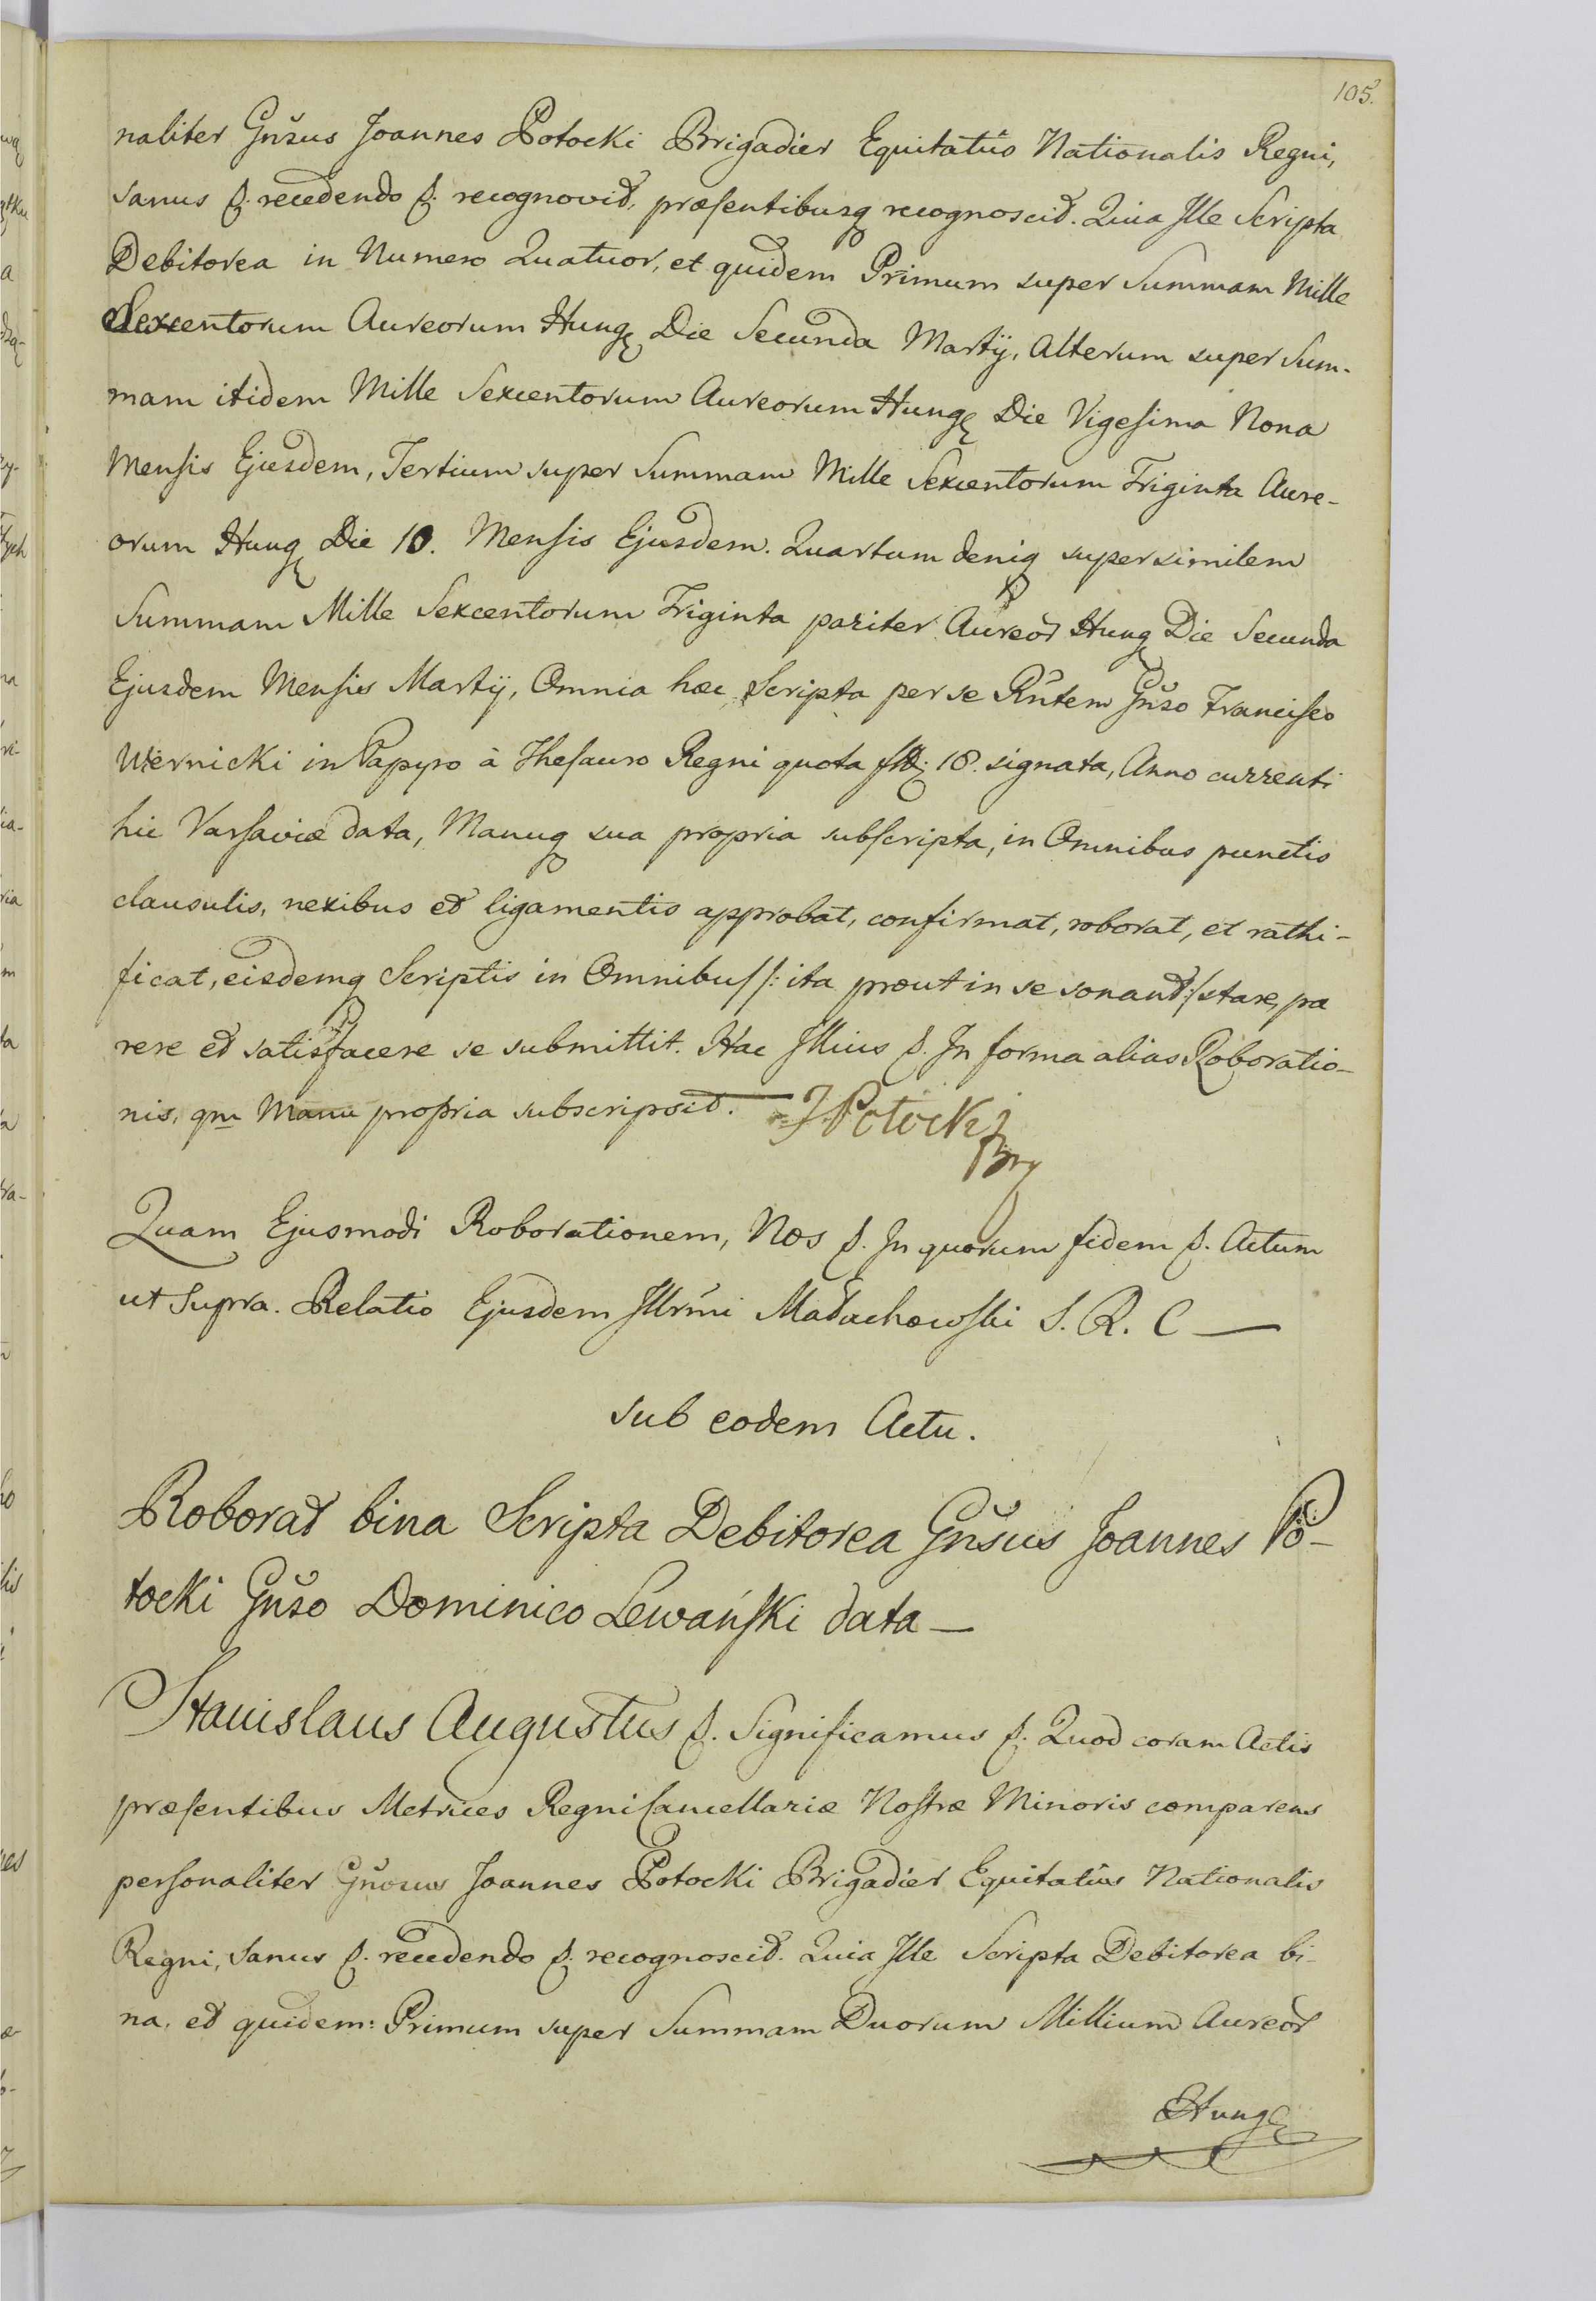 105.
naliter Gnšus Joannes Potocki Brigadier Equitatûs Nationalis Regni,
sanus &. recedendo &. recognovit, præsentibusq recognoscit. Quia Ille Scripta
Debitorea in Numero Quatuor, et quidem Primum super Summam Mille
Sexcentorum Aureorum Hung Die Secunda Martÿ, Alterum super Sum-
mam itidem Mille Sexcentorum Aureorum Hung Die Vigesima Nona
Mensis Ejusdem, Tertium super Summam Mille Sexcentorum Triginta Aure-
orum Hung Die 10. Mensis Ejusdem. Quartum deniq super similem
Summam Mille Sexcentorum Triginta pariter Aureor Hung Die Secunda
Ejusdem Mensis Martÿ, Omnia hæc Scripta per se Rñtem Gnšo Francisco
Wiernicki in Papyro à Thesauro Regni quota 18. signata, Anno currenti
hic Varsaviæ data, Manuq sua propria subscripta, in Omnibus punctis
clausulis, nexibus et ligamentis approbat, confirmat, roborat, et rathi-
ficat, eisdemq Scriptis in Omnibus /: ita prout in se sonant :/ stare, pa
rere et satisfacere se submittit. Hac Illius &. In forma alias Roboratio-
nis, qm Manu propria subscripsit. J Potocki
Bry
Quam Ejusmodi Roborationem, Nos &. In quorum fidem &. Actum
ut Supra. Relatio Ejusdem Illrm̃i Małachowski S. R. C —
sub eodem Actu.
Roborat bina Scripta Debitorea Gnšus Joannes Po-
tocki Gnšo Dominico Lewański data —
Stanislaus Augustus &. Significamus &. Quod coram Actis
præsentibus Metrices Regni Cancellariæ Nostræ Minoris comparens
personaliter Gnšus Joannes Potocki Brigadier Equitatûs Nationalis
Regni, Sanus &. recedendo &. recognoscit. Quia Ille Scripta Debitorea bi-
na, et quidem: Primum super Summam Duorum Millium Aureor
Hung